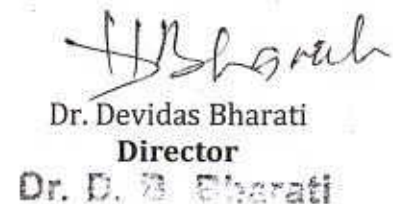 DBharati
Dr. Devidas Bharati
Director
Dr. D. B. Bharati